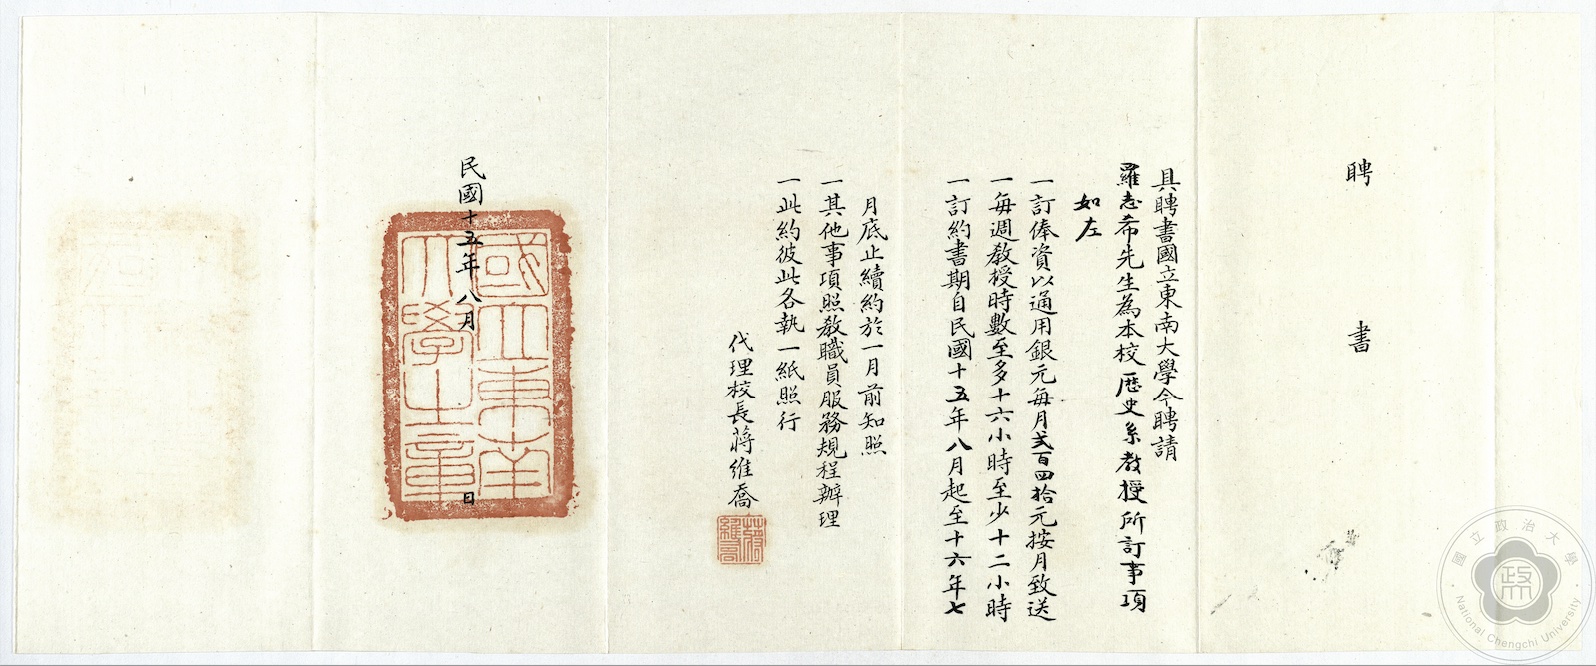 聘書
具聘書國立東南大學今聘請
羅志希先生為本校歷史系教授所訂事項
如左
一訂俸資以通用銀元每月弍百四拾元按月致送
一每週教授時數至多十六小時至少十二小時
一訂約書期自民國十五年八月起至十六年七
月底止續約於一月前知照
一其他事項照教職員服務規程辦理
一此約彼此各執一紙照行
代理校長蔣維喬
蔣維喬
民國十五年八月 日
國立東南大學之章
國立政治大學
National Chengchi University
政